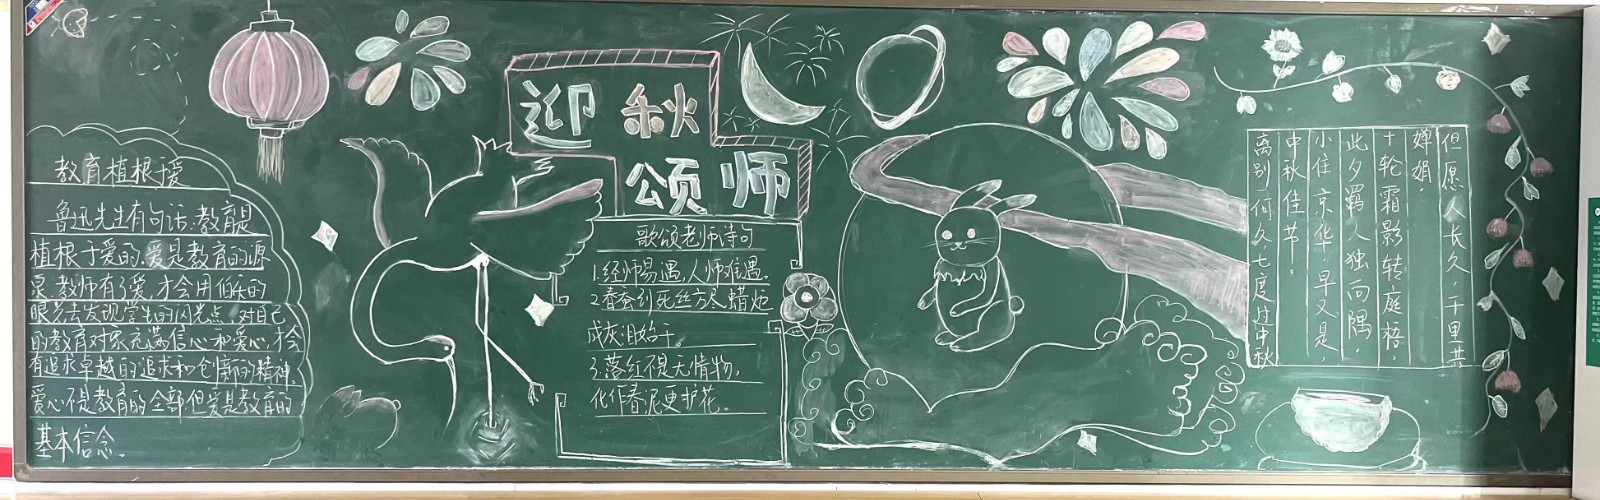 迎秋
颂师
教育植根于爱
鲁迅先生有句话:教育是
植根于爱的。爱是教育的源
泉,教师有了爱,才会用伯乐的
眼光去发现学生的闪光点,对自己
的教育对象充满信心和爱心,才会
有追求卓越的追求和创新的精神。
爱心不是教育的全部,但爱是教育的
基本信念。
歌颂老师诗句
1.经师易遇,人师难遇。
2.春蚕到死丝方尽蜡炬
成灰泪始干。
3.落红不是无情物,
化作春泥更护花。
但愿人长久,千里共
婵娟。
十轮霜影转庭梧,
此夕羁人独向隅。
小住京华,早又是,
中秋佳节。
离别一何久七度过中秋